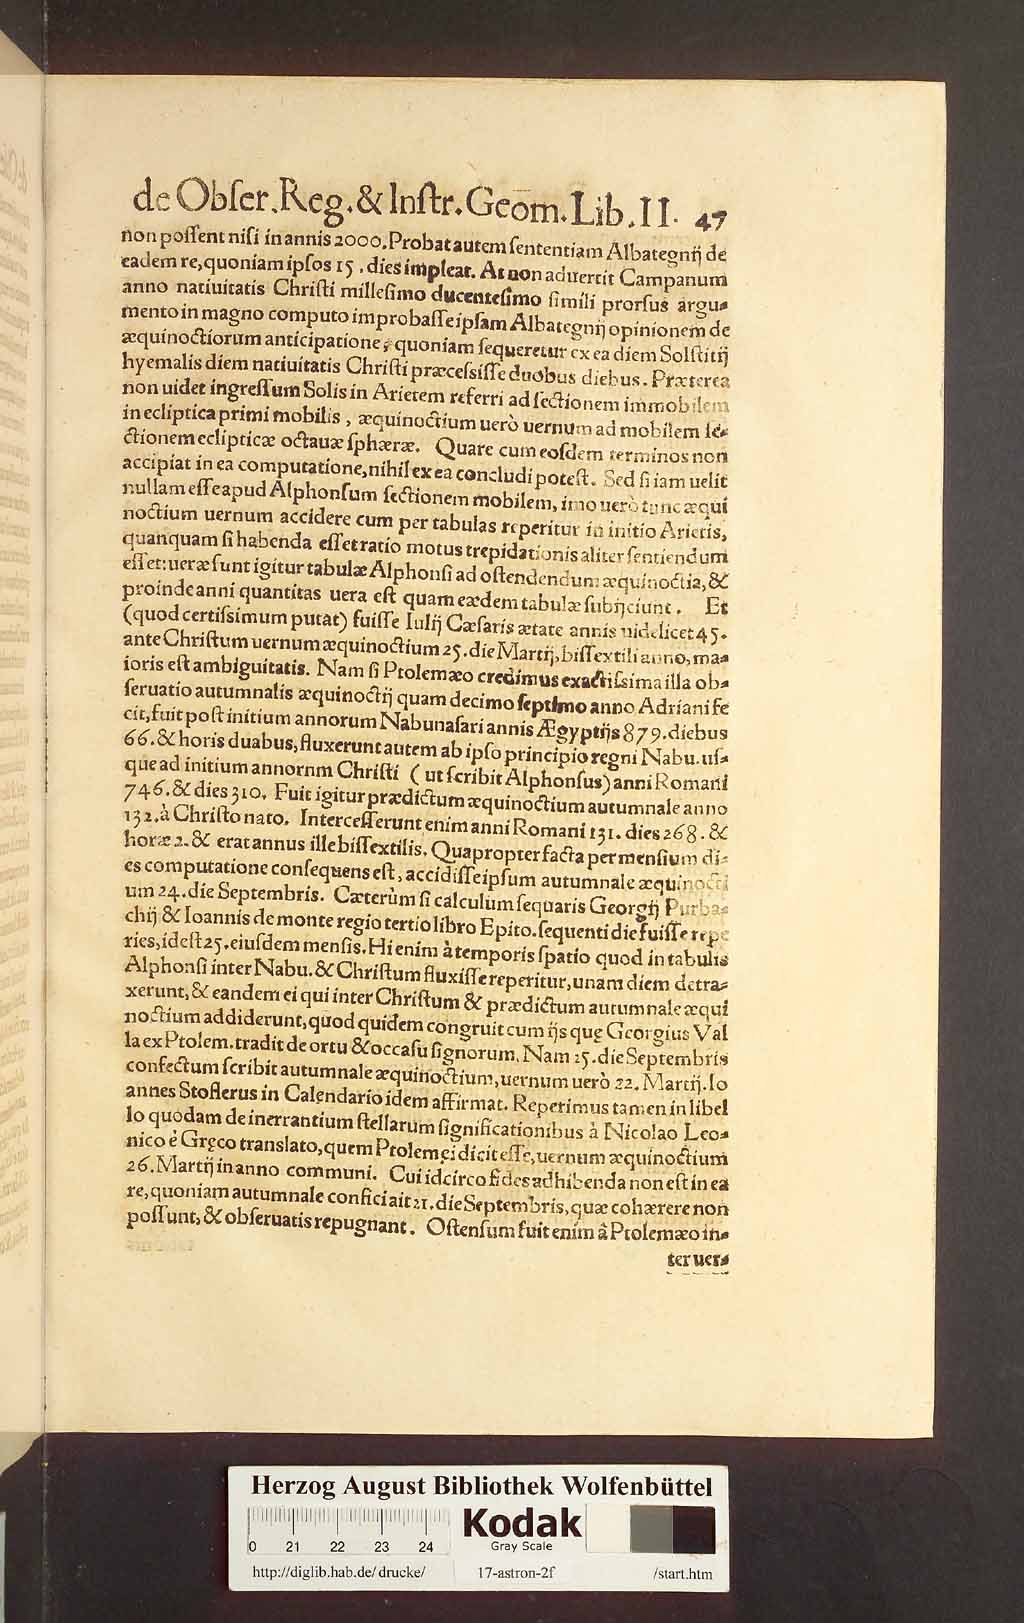 de Obſer. Reg. & Inſtr. Geom̄. Lib. II. 47
non poſſent niſi in annis 2000. Probat autem ſententiam Albategnij de
eadem re, quoniam ipſos 15. dies impleat. At non aduertit Campanum
anno natiuitatis Chriſti milleſimo ducenteſimo ſimili prorſus argu-
mento in magno computo improbaſſe ipſam Albategnij opinionem de
æquinoctiorum anticipatione, quoniam ſequeretur ex ea diem Solſtitij
hyemalis diem natiuitatis Chriſti præceſsiſſe duobus diebus. Præterea
non uidet ingreſſum Solis in Arietem referri ad ſectionem immobilem
in ecliptica primi mobilis, æquinoctium uerò uernum ad mobilem ſe-
ctionem eclipticæ octauæ ſphæræ. Quare cum eoſdem terminos non
accipiat in ea computatione, nihil ex ea concludi poteſt. Sed ſi iam uelit
nullam eſſe apud Alphonſum ſectionem mobilem, imo uerò tunc æqui
noctium uernum accidere cum per tabulas reperitur in initio Arietis,
quanquam ſi habenda eſſet ratio motus trepidationis aliter ſentiendum
eſſet: ueræ ſunt igitur tabulæ Alphonſi ad oſtendendum æquinoctia, &
proinde anni quantitas uera eſt quam eædem tabulæ ſubijciunt. Et
(quod certiſsimum putat) fuiſſe Iulij Cæſaris ætate annis uidelicet 45.
ante Chriſtum uernum æquinoctium 25. die Martij, biſſextili anno, ma-
ioris eſt ambiguitatis. Nam ſi Ptolemæo credimus exactiſsima illa ob-
ſeruatio autumnalis æquinoctij quam decimo ſeptimo anno Adriani fe
cit, fuit poſt initium annorum Nabunaſari annis Ægyptijs 879. diebus
66. & horis duabus, fluxerunt autem ab ipſo principio regni Nabu. uſ-
que ad initium annornm Chriſti ( ut ſcribit Alphonſus) anni Romani
746. & dies 310. Fuit igitur prædictum æquinoctium autumnale anno
132. à Chriſto nato. Interceſſerunt enim anni Romani 131. dies 268. &
horæ 2. & erat annus ille biſſextilis. Quapropter facta per menſium di-
es computatione conſequens eſt, accidiſſe ipſum autumnale æquinocti
um 24. die Septembris. Cæterùm ſi calculum ſequaris Georgij Purba-
chij & Ioannis de monte regio tertio libro Epito. ſequenti die fuiſſe repe
ries, id eſt 25. eiuſdem menſis. Hi enim à temporis ſpatio quod in tabulis
Alphonſi inter Nabu. & Chriſtum fluxiſſe reperitur, unam diem detra-
xerunt, & eandem ei qui inter Chriſtum & prædictum autumnale æqui
noctium addiderunt, quod quidem congruit cum ijs quę Georgius Val
la ex Ptolem. tradit de ortu & occaſu ſignorum. Nam 25. die Septembris
confectum ſcribit autumnale æquinoctium, uernum uerò 22. Martij. Io
annes Stoflerus in Calendario idem affirmat. Reperimus tamen in libel
lo quodam de inerrantium ſtellarum ſignificationibus à Nicolao Leo-
nico è Gręco translato, quem Ptolemęi dicit eſſe, uernum æquinoctium
26. Martij in anno communi. Cui idcirco fides adhibenda non eſt in ea
re, quoniam autumnale confici ait 21. die Septembris, quæ cohærere non
poſſunt, & obſeruatis repugnant. Oſtenſum fuit enim â Ptolemæo in-
ter uer-
Herzog August Bibliothek Wolfenbüttel
0 21 22 23 24
Kodak
Gray Scale
http://diglib.hab.de/drucke/ 17-astron-2f /start.htm